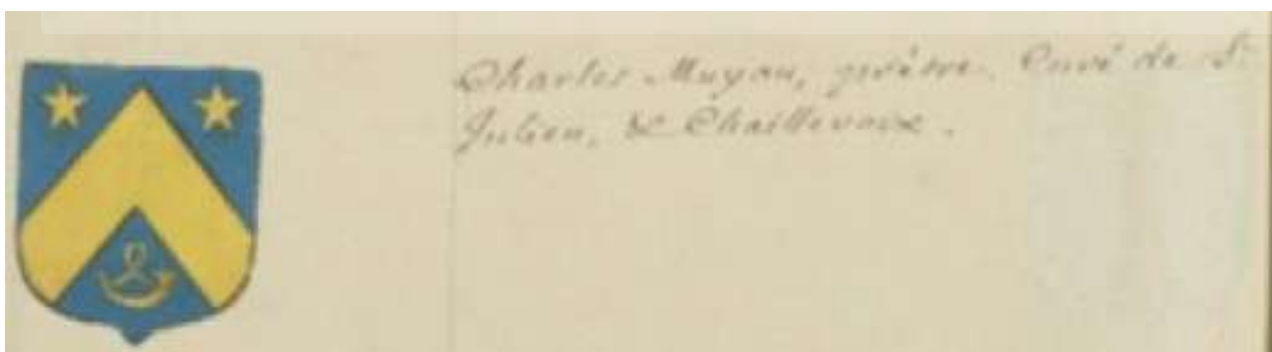 Charles Muyau, prêtre. Curé de St
Julien, & Chaillevoix.